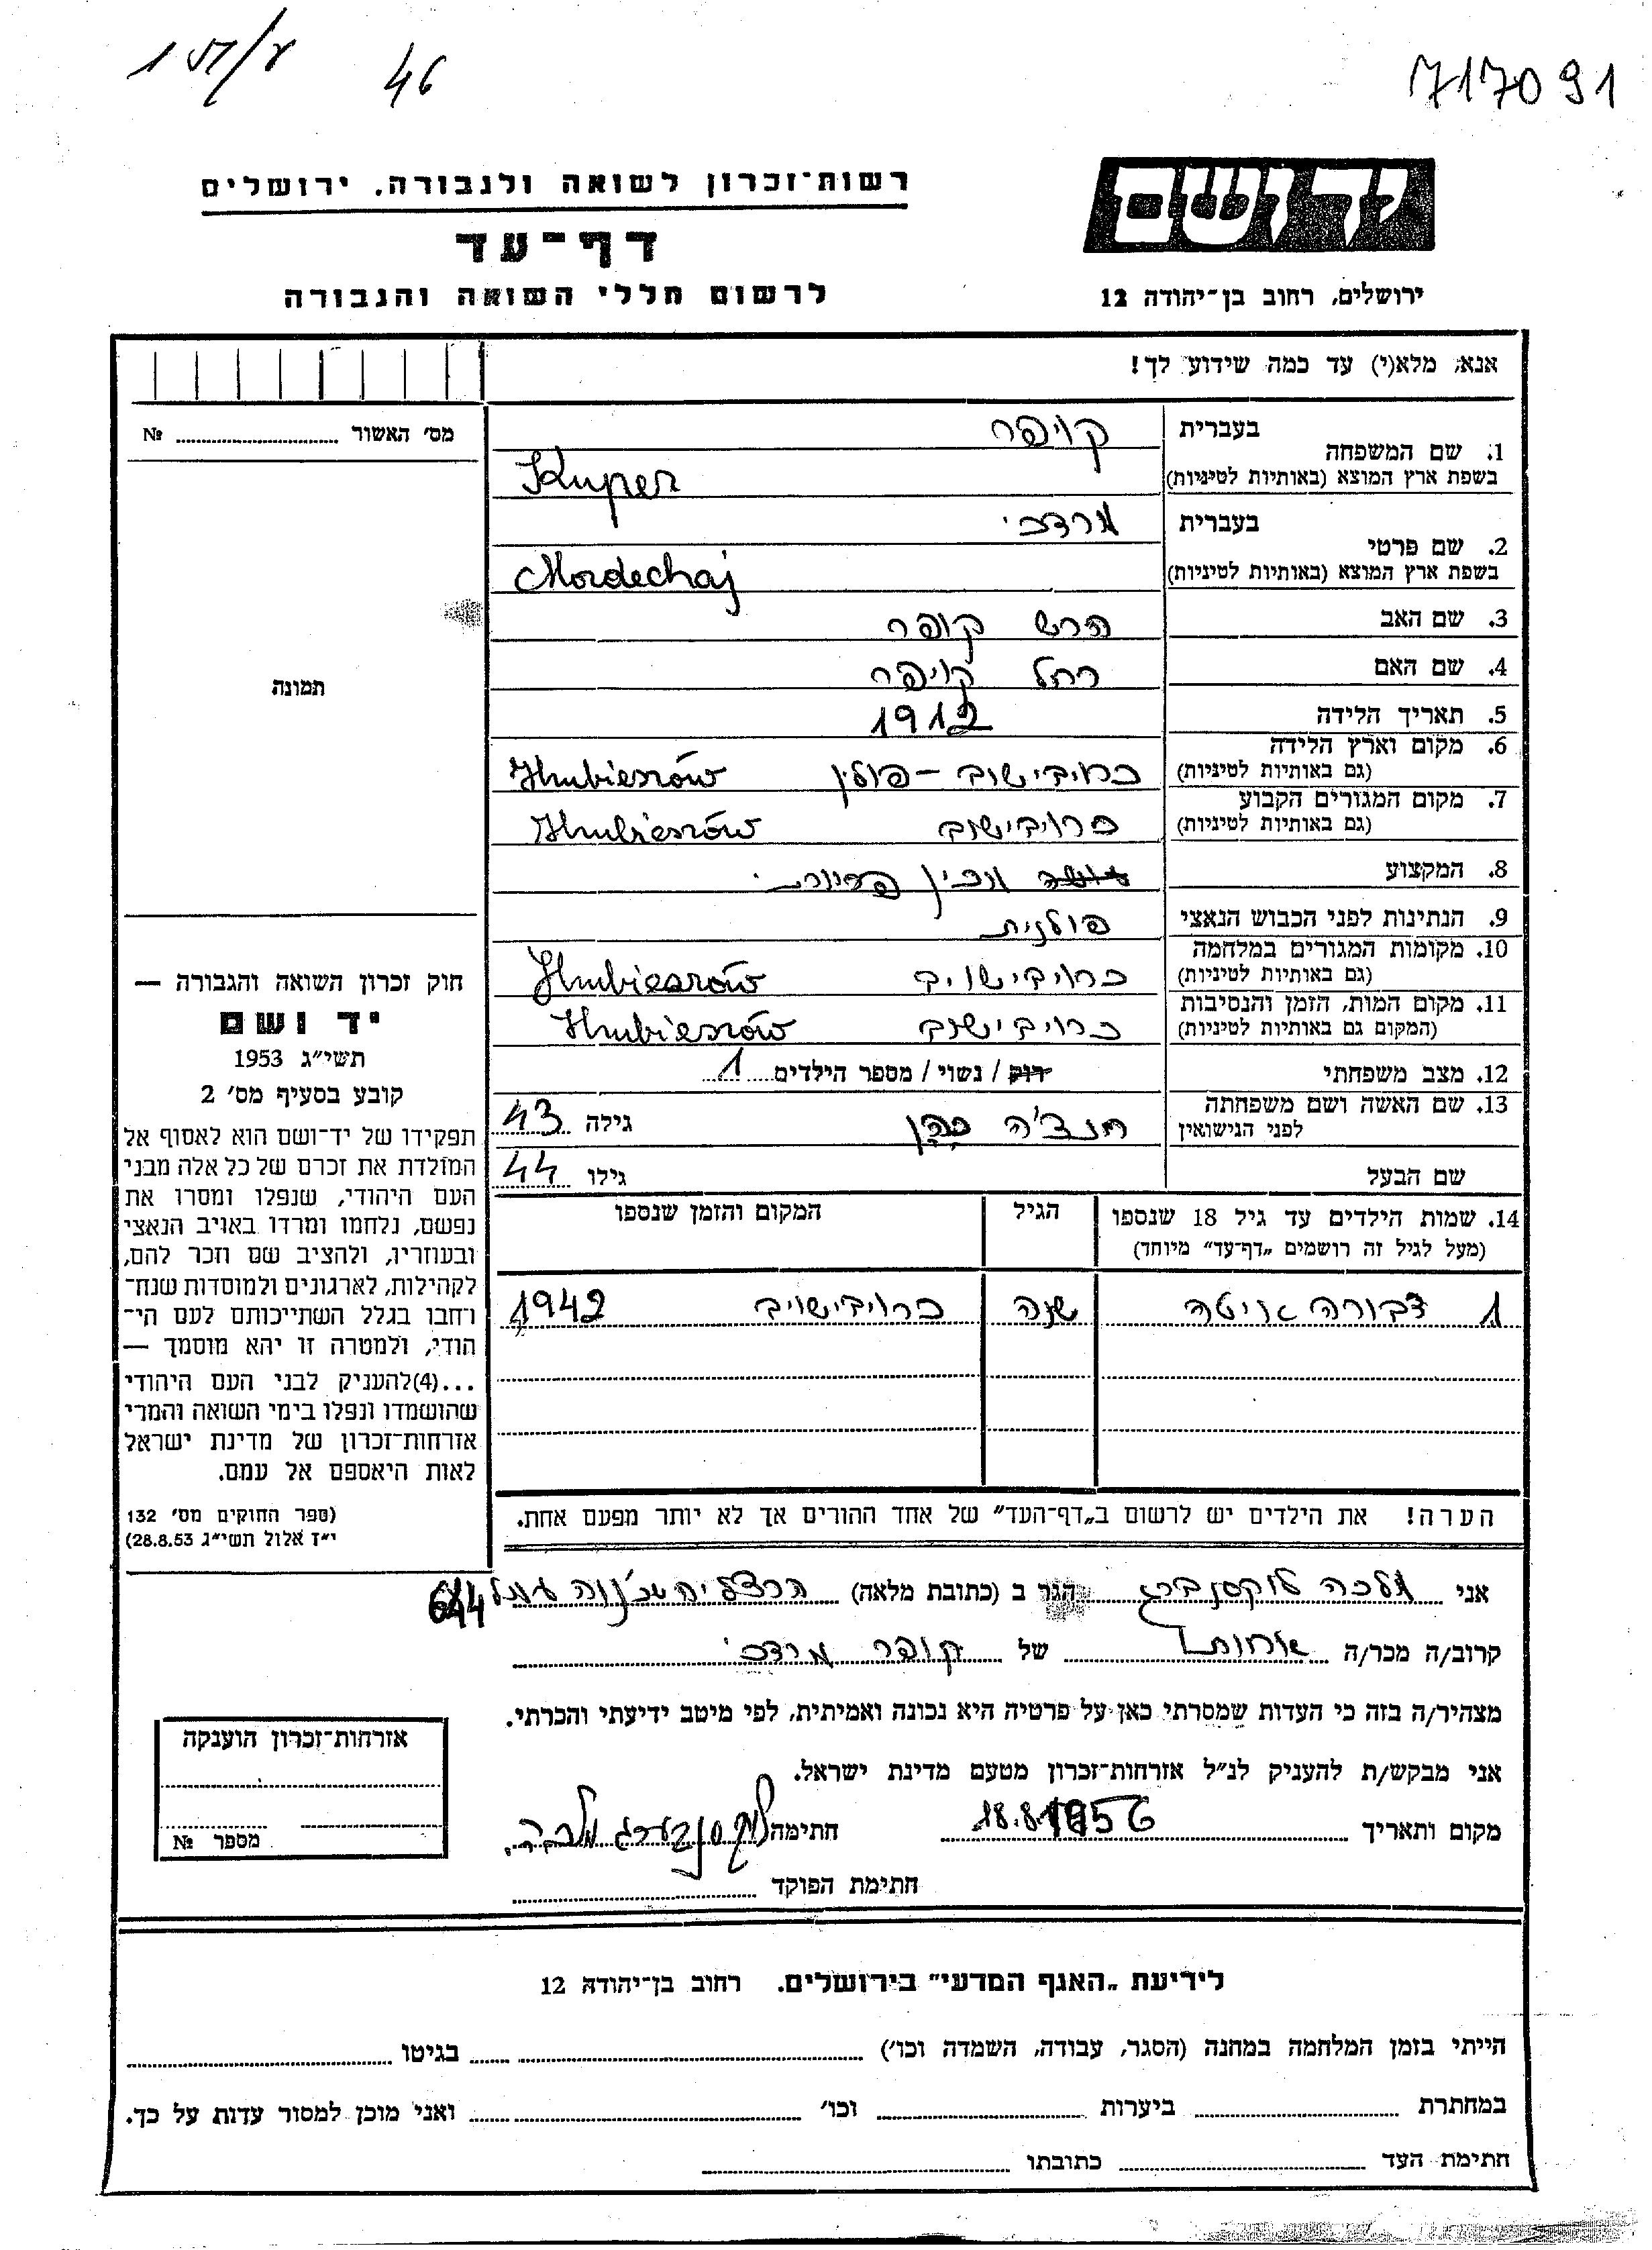 46
717091
רשות־זכרון לשואה ולגבורה. ירושלים
יד ושם
דף־עד
לרשום חללי השואה והגבורה
ירושלים, רחוב בן־יהודה 12
אנא, מלא(י) עד כמה שידוע לך!
מס׳ האשור № 
בעברית קויפר
1. שם המשפחה
בשפת ארץ המוצא (באותיות לטיניות) Kuper
בעברית מרדכי
2. שם פרטי
בשפת ארץ המוצא (באותיות לטיניות) Mordechaj
3. שם האב הרש קופר
4. שם האם רחל קויפר
תמונה
5. תאריך הלידה 1912
6. מקום וארץ הלידה
(גם באותיות לטיניות) כרוביישוב – פולין Hrubieszów
7. מקום המגורים הקבוע
(גם באותיות לטיניות) כרוביישוב Hrubieszów
8. המקצוע
9. הנתינות לפני הכבוש הנאצי פולנית
10. מקומות המגורים במלחמה
(גם באותיות לטיניות) Hrubieszów
11. מקום המות, הזמן והנסיבות
(המקום גם באותיות לטיניות) Hrubieszów
12. מצב משפחתי רווק / נשוי / מספר הילדים 1
13. שם האשה ושם משפחתה
לפני הנישואין חנצ'ה כהן גילה 43
שם הבעל גילו 44
14. שמות הילדים עד גיל 18 שנספו הגיל המקום והזמן שנספו
(מעל לגיל זה רושמים „דף־עד״ מיוחד)
1 דבורה איטה שנה 1942
הערה! את הילדים יש לרשום ב„דף־העד״ של אחד ההורים אך לא יותר מפעם אחת.
חוק זכרון השואה והגבורה —
יד ושם
תשי״ג 1953
קובע בסעיף מס׳ 2
תפקידו של יד־ושם הוא לאסוף אל
המולדת את זכרם של כל אלה מבני
העם היהודי, שנפלו ומסרו את
נפשם, נלחמו ומרדו באויב הנאצי
ובעוזריו, ולהציב שם וזכר להם,
לקהילות, לארגונים ולמוסדות שנח־
רחבו בגלל השתייכותם לעם הי־
הודי, ולמטרה זו יהא מוסמך —
...(4)להעניק לבני העם היהודי
שהושמדו ונפלו בימי השואה והמרי
אזרחות־זכרון של מדינת ישראל
לאות היאספם אל עמם.
(ספר החוקים מס׳ 132
י״ז אלול תשי״ג 28.8.53)
אני מלכה לוקסנברג הגר ב (כתובת מלאה) הרצליה 644
קרוב/ה מכר/ה אחות של קופר מרדכי
מצהיר/ה בזה כי העדות שמסרתי כאן על פרטיה היא נכונה ואמיתית, לפי מיטב ידיעתי והכרתי.
אני מבקש/ת להעניק לנ״ל אזרחות־זכרון מטעם מדינת ישראל.
מקום ותאריך 18.8.1956 חתימה לוקסנבערג מלכה
חתימת הפוקד
אזרחות־זכרון הוענקה
מספר №
לידיעת „האגף המדעי״ בירושלים. רחוב בן־יהודה 12
הייתי בזמן המלחמה במחנה (הסגר, עבודה, השמדה וכו׳) בגיטו
במחתרת ביערות וכו׳ ואני מוכן למסור עדות על כך.
חתימת העד כתובתו